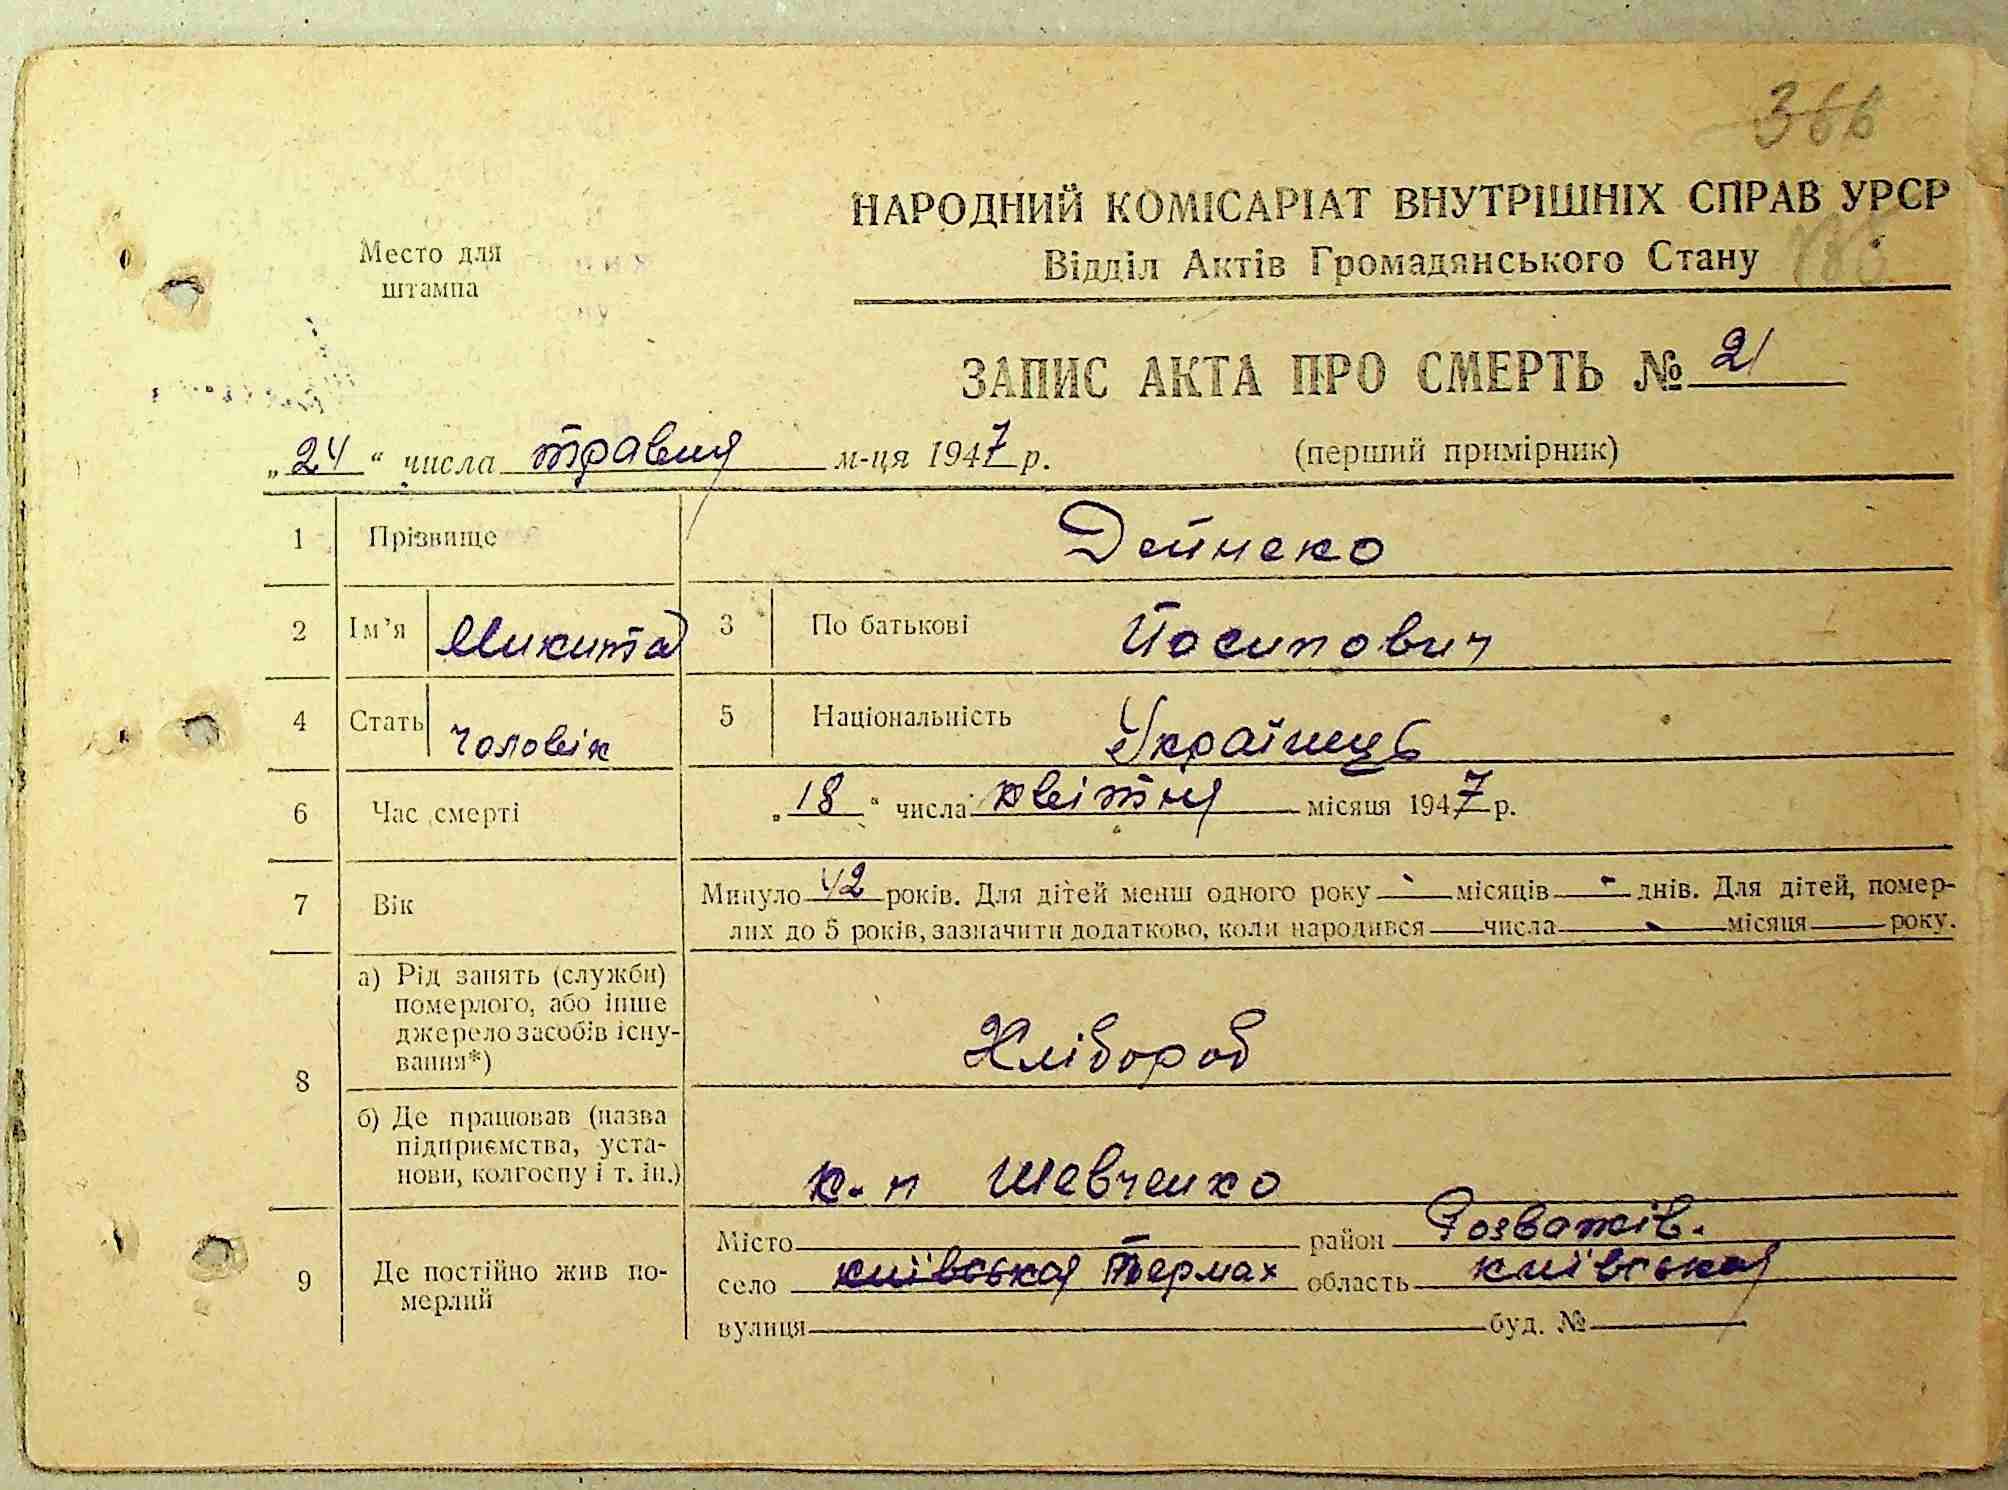 366
НАРОДНИЙ КОМІСАРІАТ ВНУТРІШНІХ СПРАВ УРСР
Відділ Актів Громадянського Стану
Место для
штампа
ЗАПИС АКТА ПРО СМЕРТЬ № 21
„24“ числа травня м-ця 1947 р. (перший примірник)
1 Прізвище Дейнеко
2 Ім'я Микита 3 По батькові Йосипович
4 Стать чоловік 5 Національність Українець
6 Час смерті „18“ числа квітня місяця 1947 р.
7 Вік Минуло 42 років. Для дітей менш одного року - місяців - днів. Для дітей, помер-
лих до 5 років, зазначити додатково, коли народився числа - місяця року.
8 а) Рід занять (служби)
померлого, або інше
джерело засобів існу-
вання*) Хлібороб
б) Де працював (назва
підприємства, уста-
нови, колгоспу і т. ін.) к-п Шевченко
9 Де постійно жив по-
мерлий
Місто район Розважів.
село київська Термах область київська
вулиця буд. №